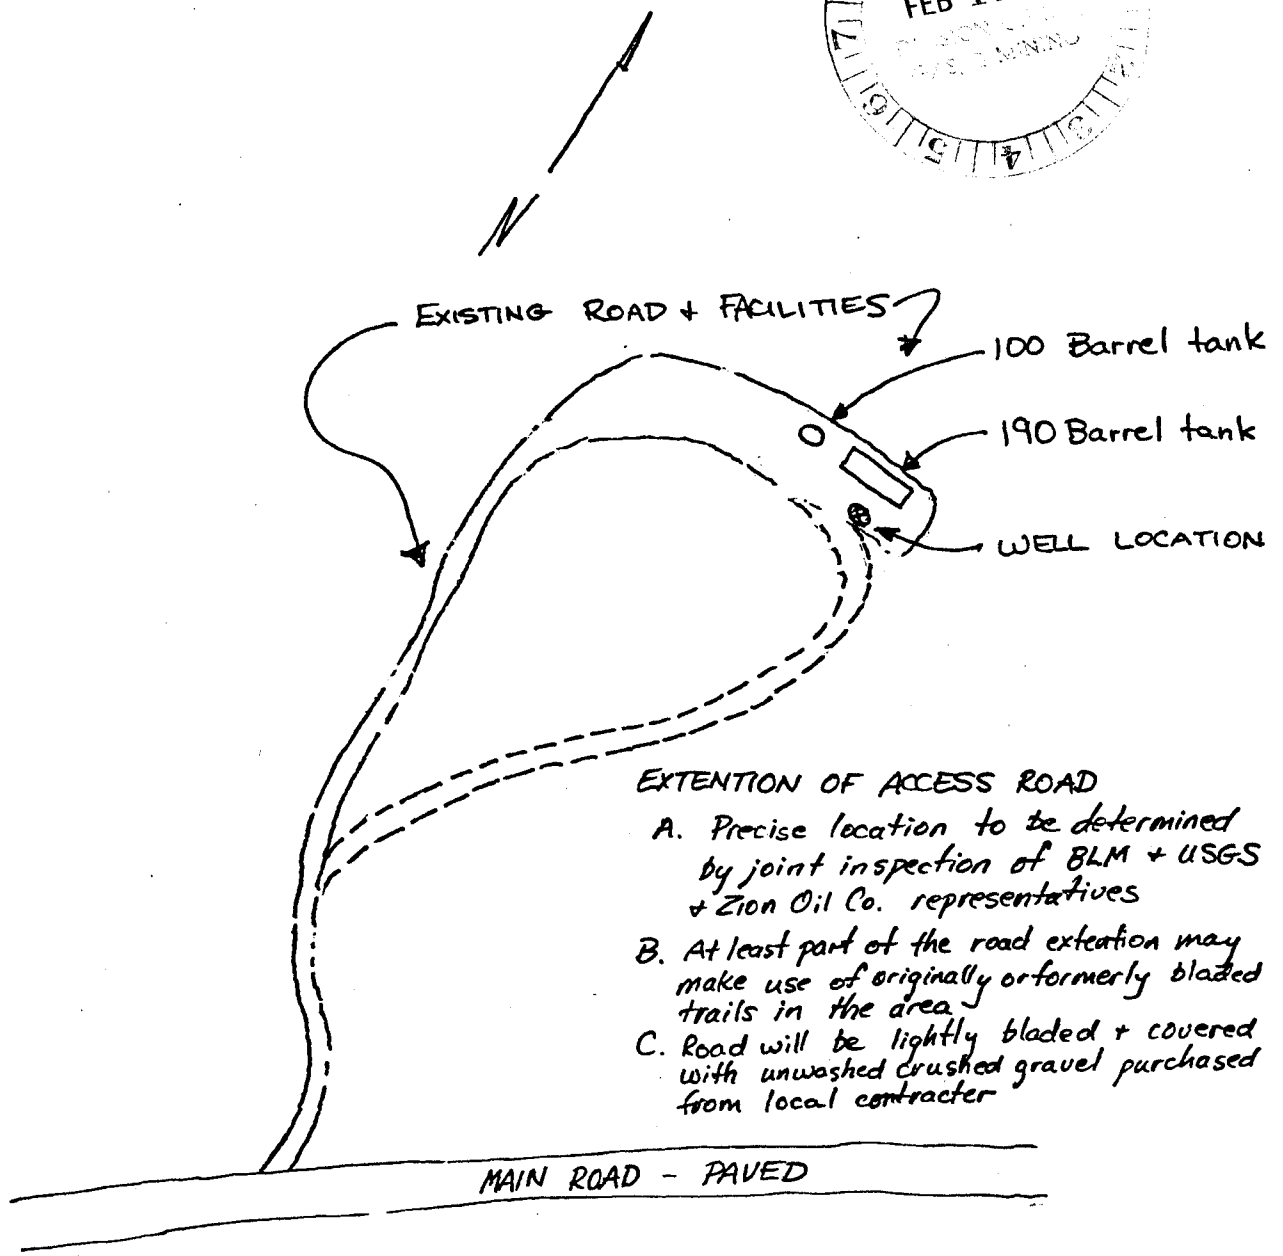 FEB
7 6 5 4 3
N
EXISTING ROAD + FACILITIES
100 Barrel tank
190 Barrel tank
WELL LOCATION
EXTENTION OF ACCESS ROAD
A. Precise location to be determined
by joint inspection of BLM + USGS
+ Zion Oil Co. representatives
B. At least part of the road extention may
make use of originally or formerly bladed
trails in the area
C. Road will be lightly bladed + covered
with unwashed crushed gravel purchased
from local contracter
MAIN ROAD - PAVED